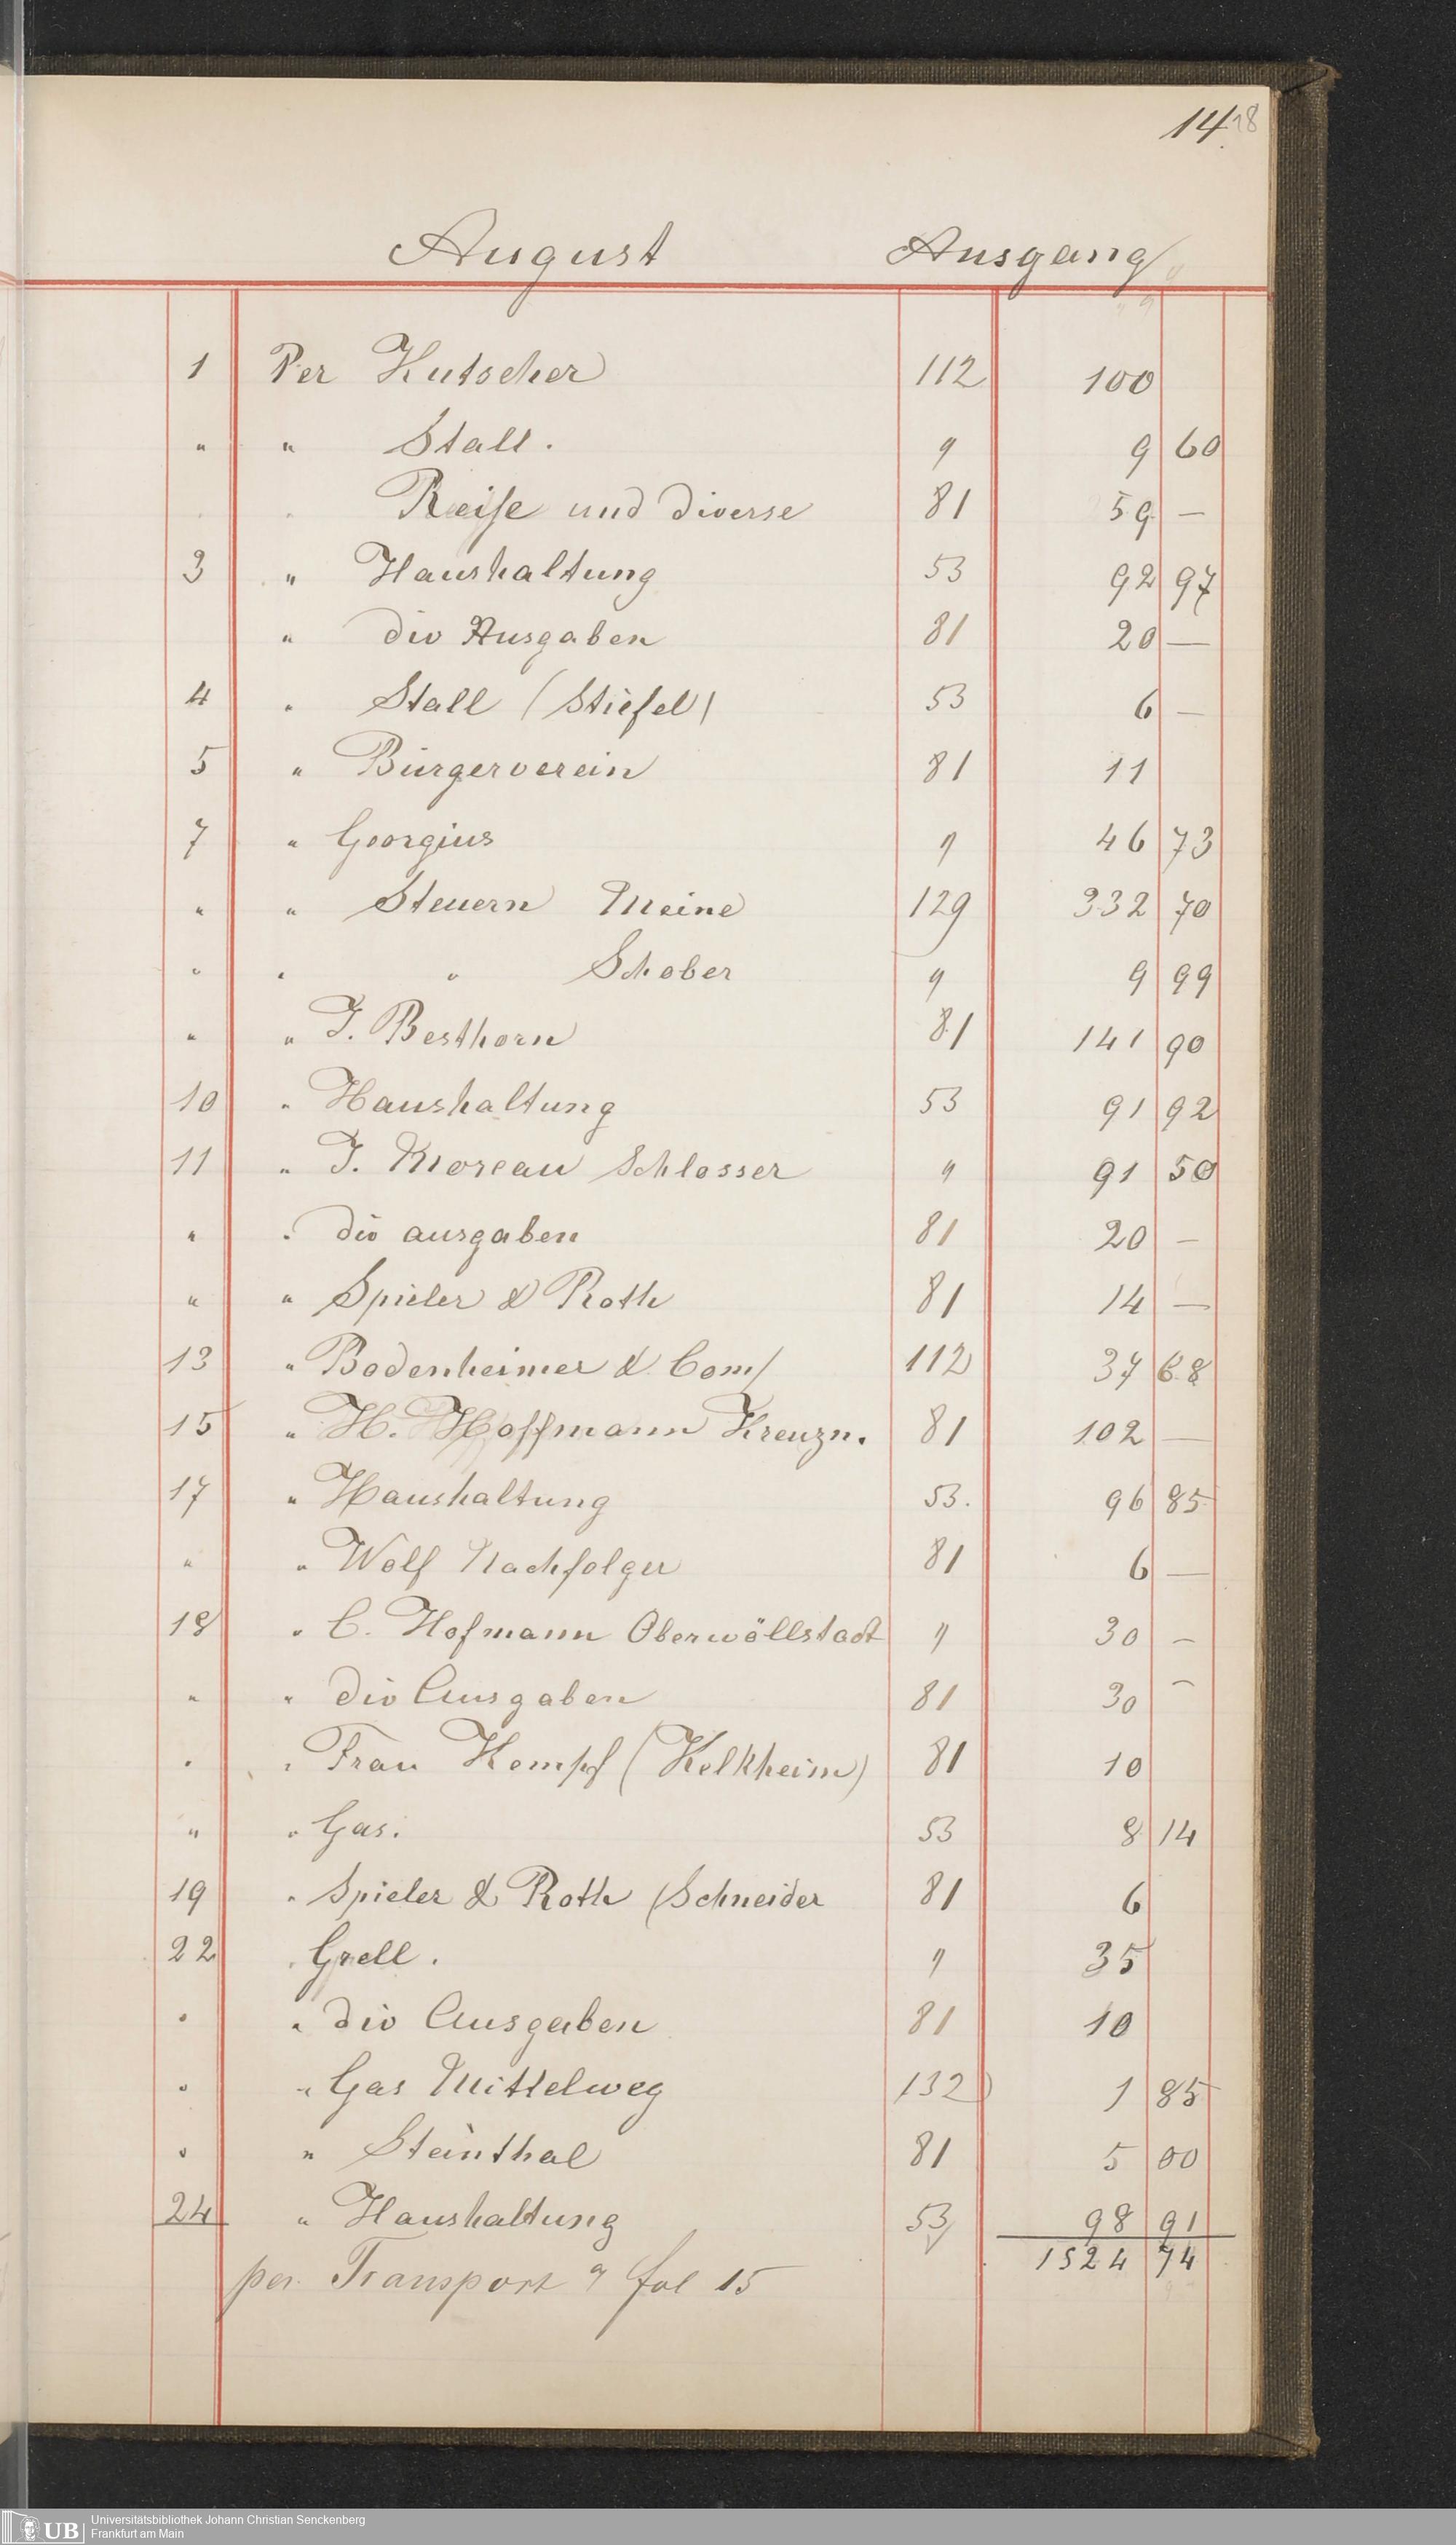 14. 18
August Ausgang
1 Per Kutscher 112 100
" " Stall. " 9 60
" " Reise und diverse 81 59 —
3 " Haushaltung 53 92 97
" div Ausgaben 81 20 —
4 " Stall (Stiefel) 53 6 —
5 " Bürgerverein 81 11
7 " Georgius " 46 73
" " Steuern Meine 129 332 70
" " " Schober " 9 99
" " J. Besthorn 81 141 90
10 " Haushaltung 53 91 92
11 " J. Moreau Schlosser " 91 50
" " div ausgaben 81 20 —
" " Spieler & Roth 81 14 —
13 " Bodenheimer & Com/ 112 37 68
15 " H. Hoffmann Kreuzn. 81 102 —
17 " Haushaltung 53. 96 85
" " Wolf Nachfolger 81 6 —
18 " C. Hofmann Oberwöllstadt " 30 —
" " div Ausgaben 81 30 —
" " Frau Kempf (Kelkheim) 81 10
" " Gas. 53 8 14
19 " Spieler & Roth (Schneider 81 6
22 " Grell. " 35
" " div Ausgaben 81 10
" " Gas Mittelweg 132 1 85
" " Steinthal 81 5 00
24 " Haushaltung 53 98 91
per Transport a fol 15 1524 74
UB Universitätsbibliothek Johann Christian Senckenberg
Frankfurt am Main